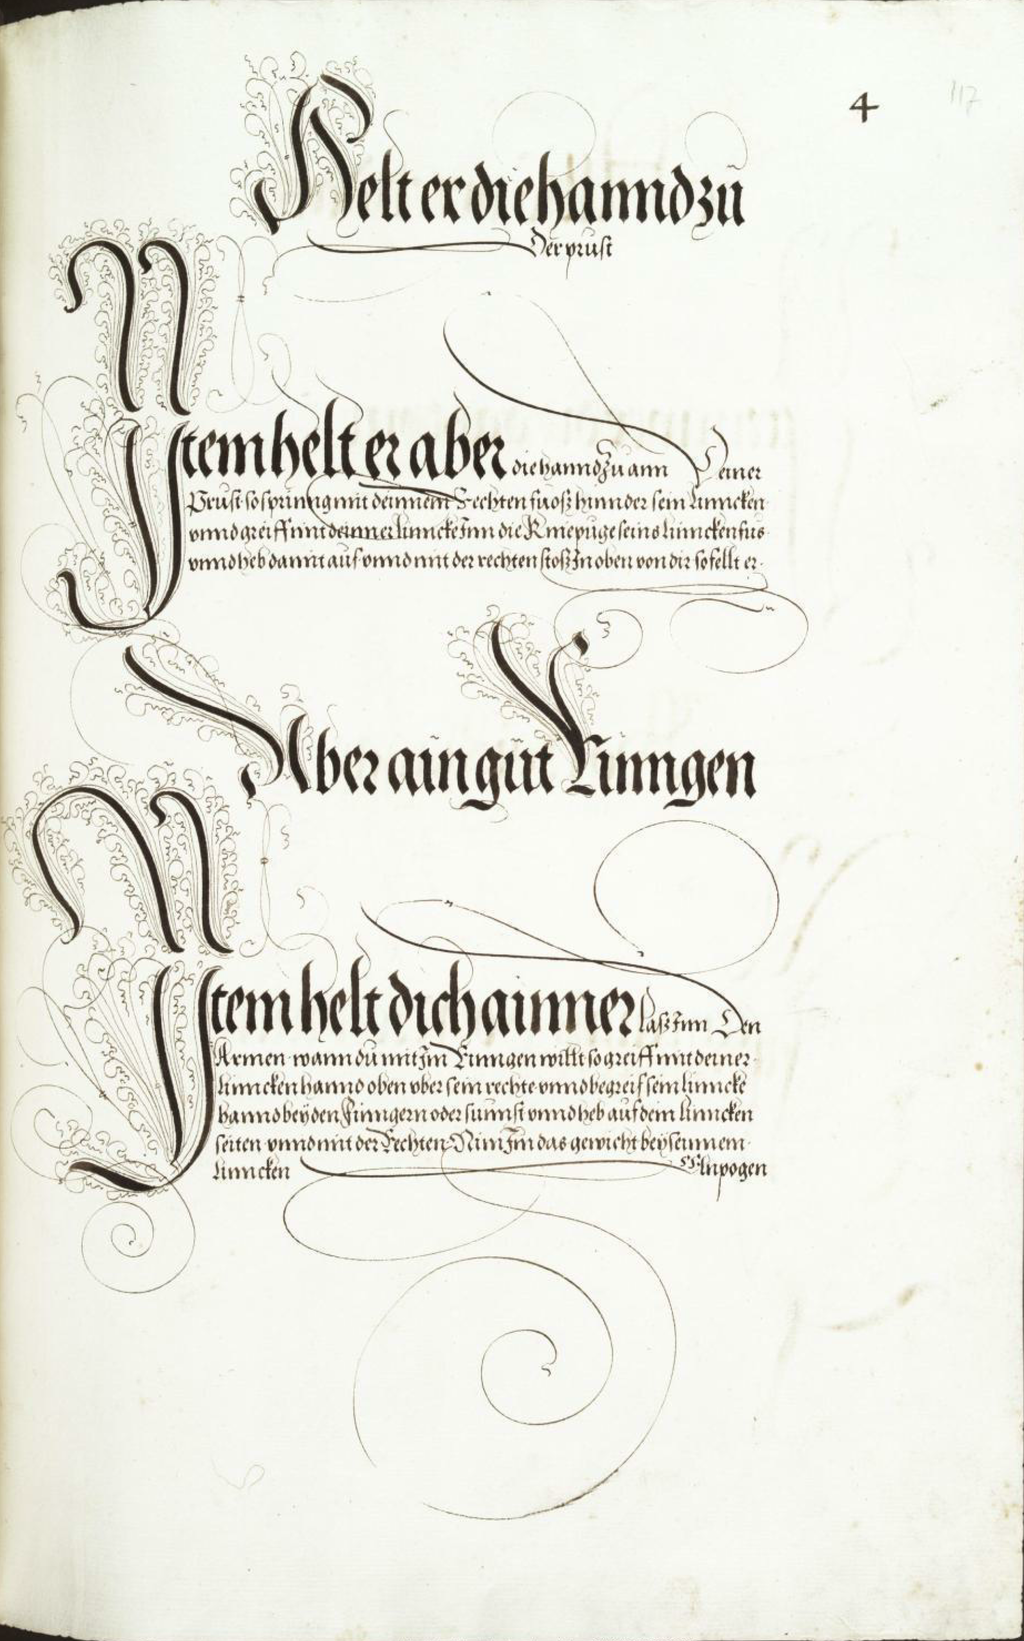 4
117
Helt er die hannd zu
Der prust
Item helt er aber die hannd zu ann Seiner
Prust so spring mit deinnem Rechten fuosz hinnder sein linncken
vnnd greiff mit deinner linncke Inn die Kniepuge seins linncken fus
vnnd heb damit auf vnnd mit der rechten stosz In oben von dir so fellt er
Aber ain gut Rinngen
Item helt dich ainner lasz Inn Den
Armen wann du mit Im Rinngen willt so greiff mit deiner
linncken hannd oben vber sein rechte vnnd begreif sein linncke
hannd bey den Finngern oder sunnst vnnd heb auf dein linncken
seiten vnnd mit der Rechten Nim Im das gewicht bey seinnem
linncken Elnpogen